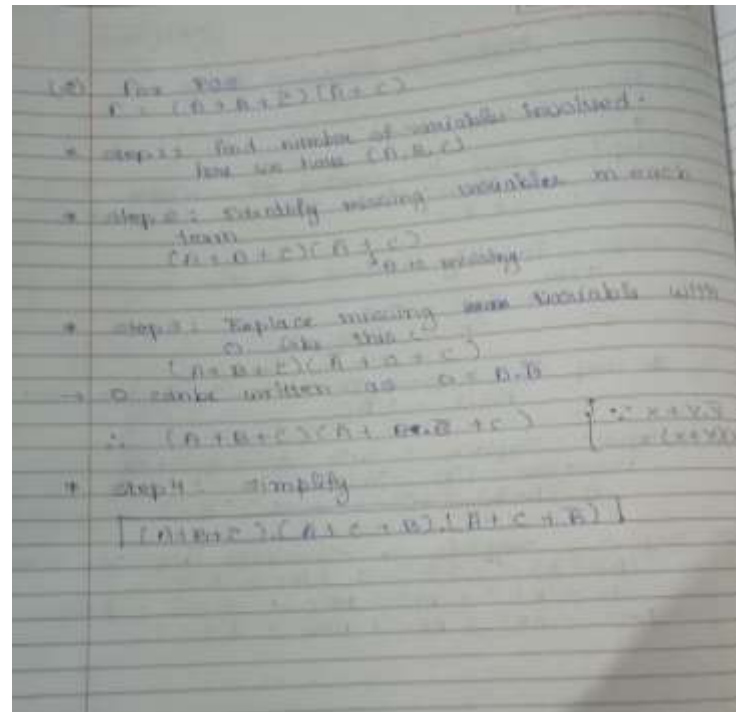 (2) For POS
F = (A + B + C) (A + C)
* step 1: find number of variables involved.
here we have (A, B, C)
* step 2: Identify missing variables in each
term
(A + B + C) (A + C)
B is missing
* step 3: Replace missing variable with
0 like this
(A + B + C) (A + 0 + C)
→ 0 can be written as 0 = B.B̅
∴ (A + B + C) (A + B.B̅ + C) { ∵ X + Y.Z
= (X + Y)(X
* step 4: simplify
(A+B+C).(A + C + B).(A + C + B̅)